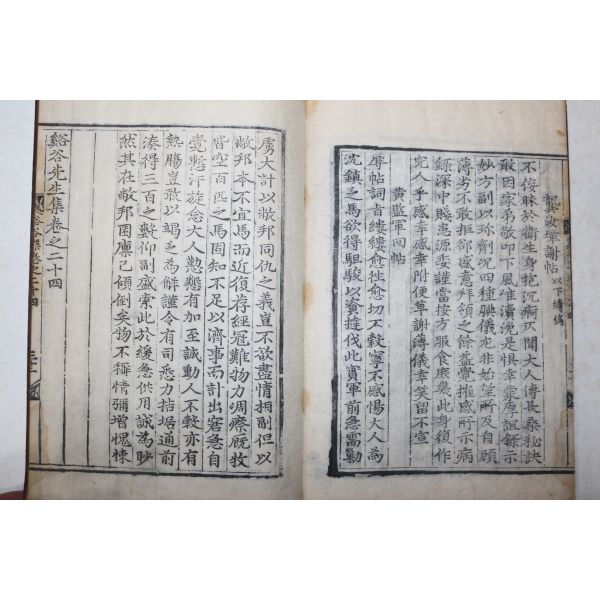 龔參謀謝帖 以下續稿
不佞昧於衛生身抱沉痾仄聞大人傳長桑秘訣
敢因家弟敬叩下風唯瀆浼是惧幸蒙原諒錄示
妙方副以珎劑況四種腆儀尤非始望所及自顧
薄劣不敢拒郤感意拜領之餘益覺摧感所示病
錄深中賤患源委謹當按方服食庶幾此身復作
完人乎感幸感幸附便草謝薄儀幸笑留不宣
黃監軍回帖
辱帖詞旨縷縷愈徃愈切不穀寧不感惕大人為
沈鎮乏馬欲得駔駿以資撻伐此實軍前急需勦
虜大計以敝邦同仇之義豈不欲盡情捐副但以
敝邦本不宜馬而近復荐經寇難物力凋瘵厩牧
皆空百匹之馬固知不足以濟事而計出窘急自
覺慙汗旋愈大人懃懇有加至誠動人不穀亦有
熱腸豈敢以竭乏為解謹令有司悉力拮据通前
湊得三百之數仰副盛索此於緩急供用誠為眇
然其在敝邦困廩已傾倒矣物不稱情彌增愧悚
谿谷先生集卷之二十四